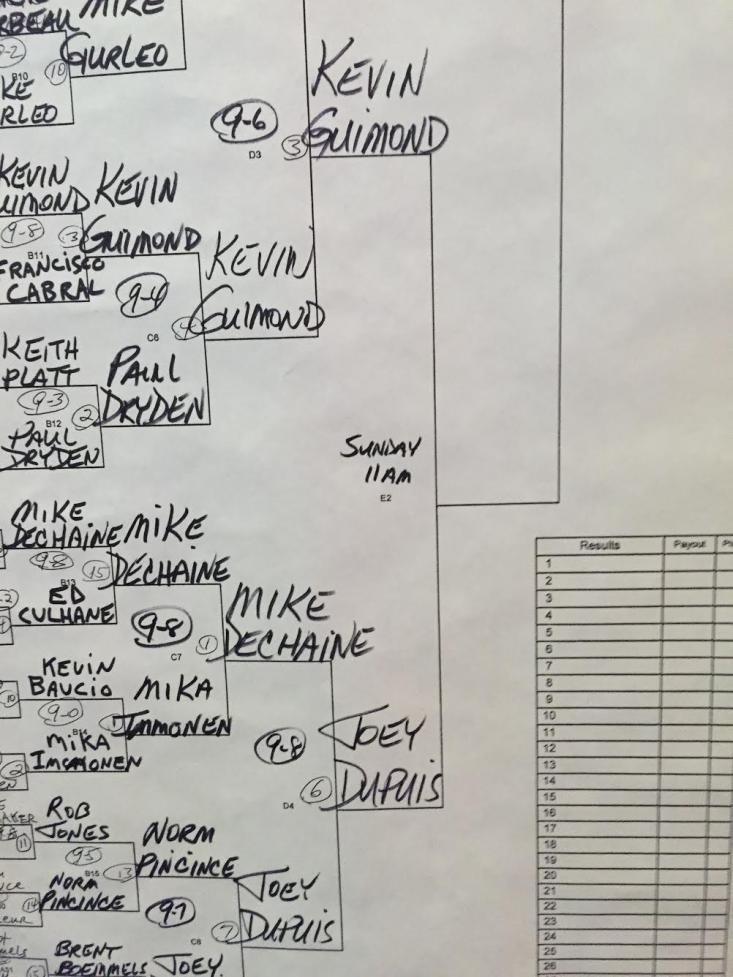 MIKE
GURLEO
10
B10
KEVIN
GUIMOND
9-6
D3
3
KEVIN
GUIMOND
KEVIN
GUIMOND
9-8
3
B11
FRANCISCO
CABRAL
9-4
C6
KEVIN
GUIMOND
KEITH
PLATT
PAUL
DRYDEN
9-3
2
B12
PAUL
DRYDEN
SUNDAY
11AM
E2
MIKE
DECHAINE
MIKE
DECHAINE
9-8
15
B13
ED
CULHANE
9-8
1
C7
MIKE
DECHAINE
KEVIN
BAUCIO
10
9-0
MIKA
IMMONEN
MIKA
IMMONEN
2
9-8
D4
6
JOEY
DUPUIS
ROB
JONES
11
9-5
13
B15
NORM
PINCINCE
NORM
PINCINCE
14
9-7
C8
7
JOEY
DUPUIS
BRENT
BOEMMELS
JOEY
Results Payout
1
2
3
4
5
6
7
8
9
10
11
12
13
14
15
16
17
18
19
20
21
22
23
24
25
26